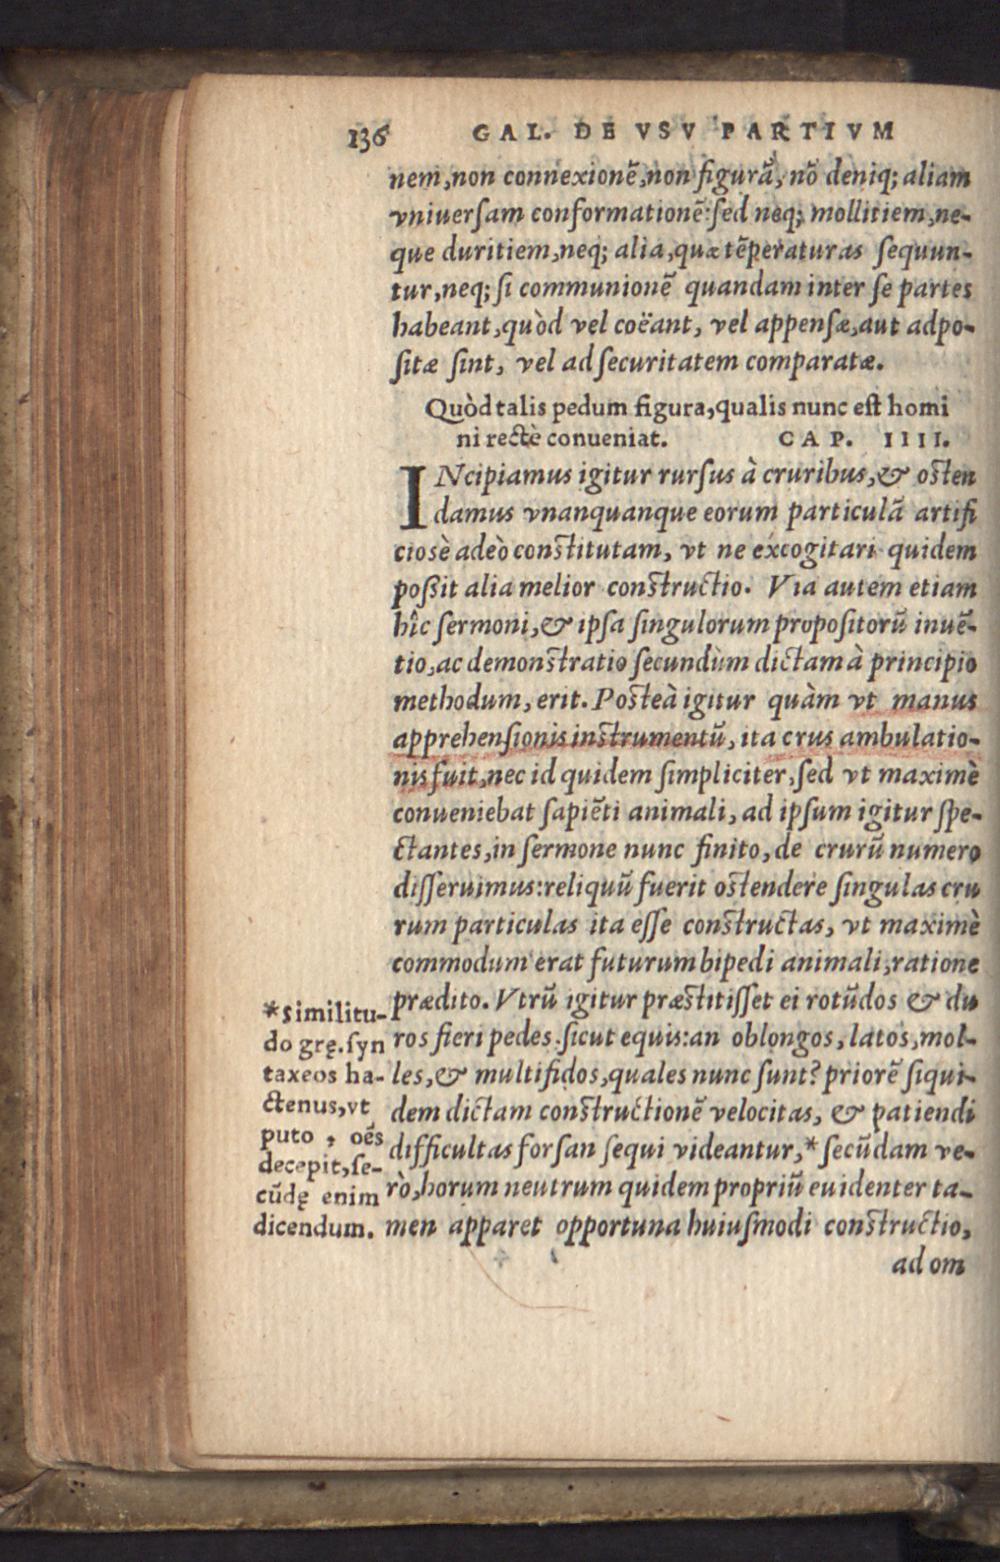 136 GAL. DE VSV PARTIVM
nem, non connexionẽ, non figurã, nõ deniq; aliam
vniuerſam conformationẽ: ſed neq; mollitiem, ne-
que duritiem, neq; alia, quæ tẽperaturas ſequun-
tur, neq; ſi communionẽ quandam inter ſe partes
habeant, quòd vel coëant, vel appenſæ, aut adpo-
ſitæ ſint, vel ad ſecuritatem comparatæ.
Quòd talis pedum figura, qualis nunc eſt homi
ni rectè conueniat. CAP. IIII.
INcipiamus igitur rurſus à cruribus, & oſten
damus vnanquanque eorum particulã artifi
ciosè adeò conſtitutam, vt ne excogitari quidem
poßit alia melior conſtructio. Via autem etiam
hîc ſermoni, & ipſa ſingulorum propoſitorũ inuẽ-
tio, ac demonſtratio ſecundùm dictam à principio
methodum, erit. Poſteà igitur quàm vt manus
apprehenſionis inſtrumentũ, ita crus ambulatio-
nis fuit, nec id quidem ſimpliciter, ſed vt maximè
conueniebat ſapiẽti animali, ad ipſum igitur ſpe-
ctantes, in ſermone nunc finito, de crurũ numero
diſſeruimus: reliquũ fuerit oſtendere ſingulas cru
rum particulas ita eſſe conſtructas, vt maximè
commodum erat futurum bipedi animali, ratione
prædito. Vtrũ igitur præſtitiſſet ei rotũdos & du
ros fieri pedes ſicut equis: an oblongos, latos, mol-
les, & multifidos, quales nunc ſunt? priorẽ ſiqui-
dem dictam conſtructionẽ velocitas, & patiendi
difficultas forſan ſequi videantur, * ſecũdam ve-
rò, horum neutrum quidem propriũ euidenter ta-
men apparet opportuna huiuſmodi conſtructio,
ad om
*Similitu-
do grę. ſyn
taxeos ha-
ctenus, vt
puto, oẽs
decepit, ſe-
cũdę enim
dicendum.